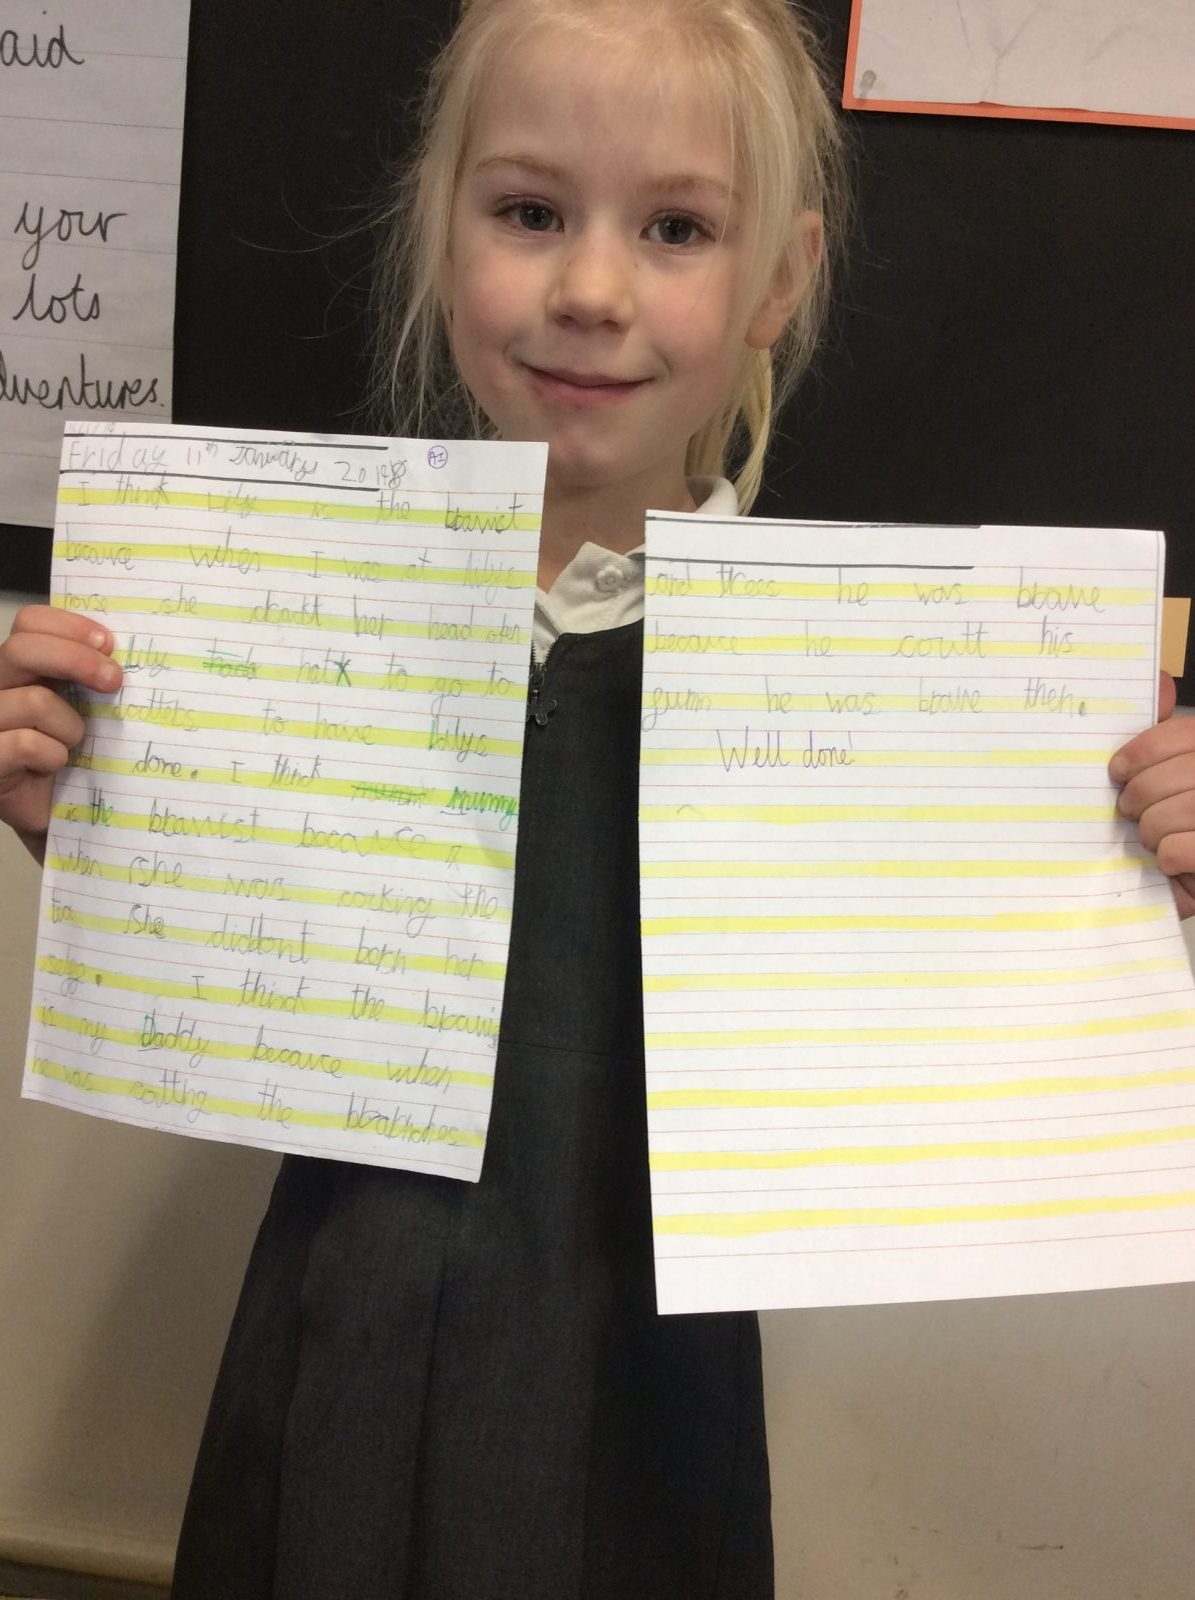 aid
your
lots
dventures.
Friday 11th January 201
I think Lily is the bravist
because when I was at lilys
horse she crackt her head open
Lily hat to go to
the docttobs to have Lilys
head done. I think mummy
is the bravist bocauce
when she was cocking the
tea she diddont born her
selfe. I think the bravi
is my Daddy because when
he was cotting the bbabnches
and trees he was brave
because he coutt his
gumn he was brave then.
Well done!